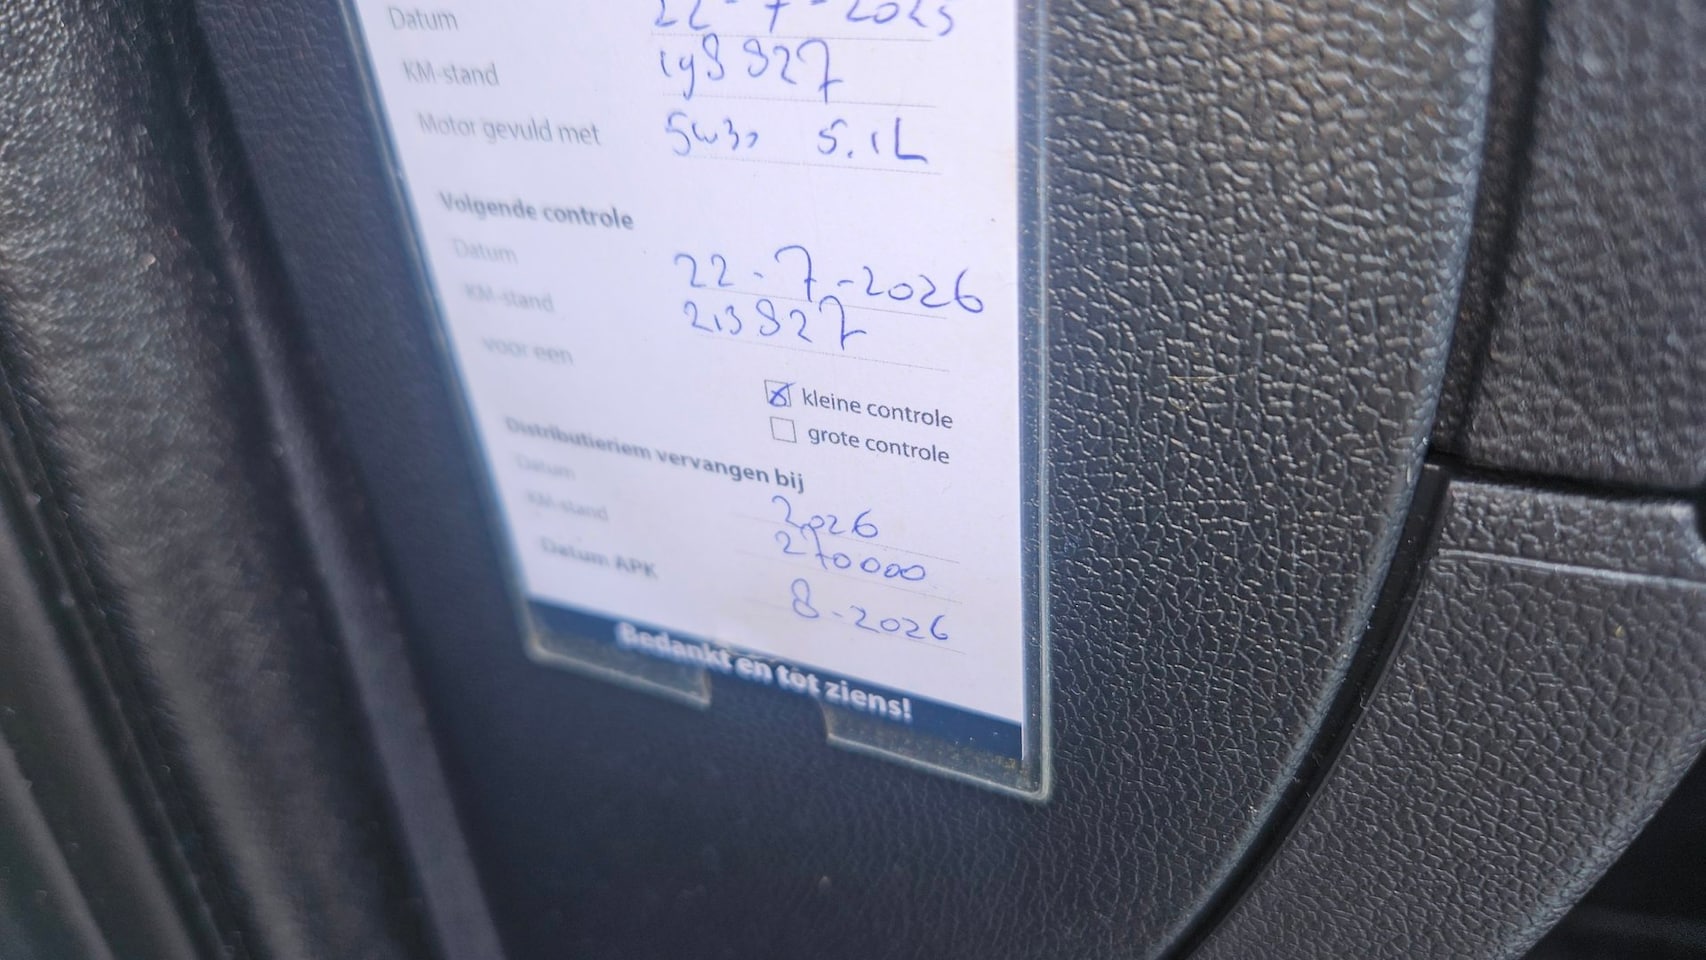 Datum 22-7-2025
KM-stand 198827
Motor gevuld met 5w30 5.1L
Volgende controle
Datum 22-7-2026
KM-stand 213827
voor een
☒ kleine controle
☐ grote controle
Distributieriem vervangen bij
Datum 2026
KM-stand 270000
Datum APK 8-2026
Bedankt en tot ziens!